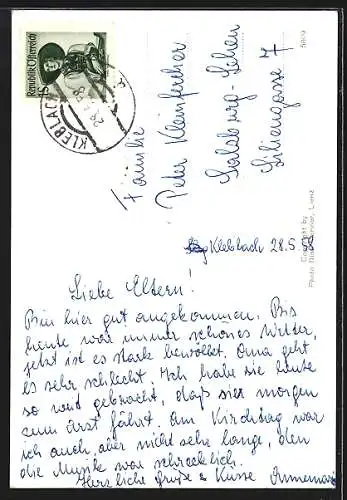 Republik Österreich
1S
KLEBLACH
5809
Familie
Peter Kleinfercher
Salzburg-Lehen
Siliengasse 7
Copyright by
Lienz
Kleblach 28.5.
Liebe Eltern!
Bin hier gut angekommen. Bis
heute war immer schönes Wetter,
jetzt ist es stark bewölket. Oma geht
es sehr schlecht. Ich habe sie heute
so weit gebracht, daß sie morgen
zum Arzt fährt. Am Kirchtag war
ich auch, aber nicht sehr lange, den
die Musik war schrecklich.
Herzliche Grüße & Küsse Annemarie